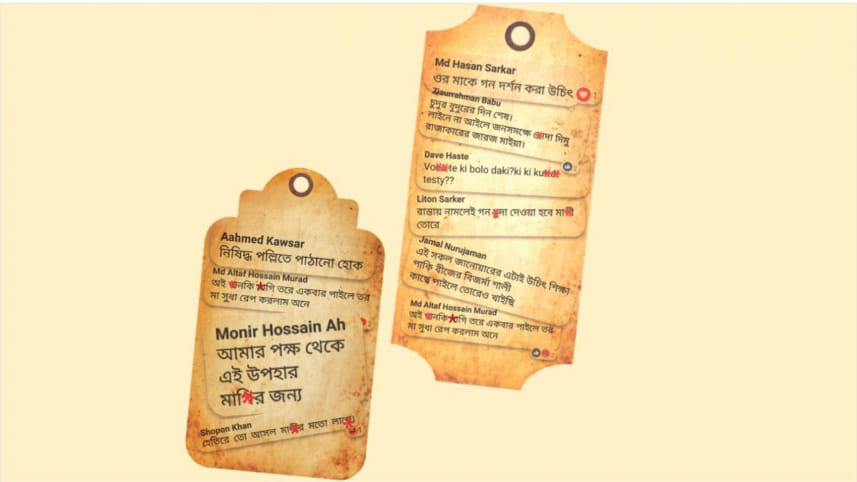 Aahmed Kawsar
নিষিদ্ধ পল্লিতে পাঠানো হোক
Md Altaf Hossain Murad
অই তরে একবার পাইলে তর
মা সুধা রেপ করলাম অনে
Monir Hossain Ah
আমার পক্ষ থেকে
এই উপহার
জন্য
Shopon Khan
হেতিরে তো আসল মতো
Md Hasan Sarkar
ওর মাকে গন দর্শন করা উচিৎ
1
Ziaurrahman Babu
চুদুর বুদুরের দিন শেষ।
লাইনে না আইলে জনসমক্ষে দিমু
রাজাকারের জারজ মাইয়া।
Dave Haste
ki bolo daki?ki ki
testy??
Liton Sarker
রাস্তায় নামলেই গন দেওয়া হবে
তোরে
Jamal Nurujaman
এই সকল জানোয়ারের এটাই উচিৎ শিক্ষা
পাকি বীজের বিজর্মা শালী
কাছে পাইলে তোরেও খাইছি
Md Altaf Hossain Murad
অই তরে একবার পাইলে তর
মা সুধা রেপ করলাম অনে